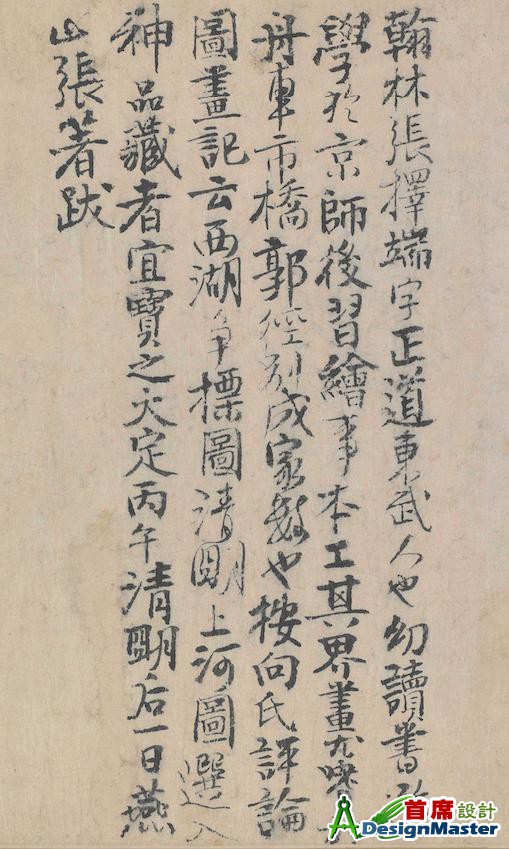 翰林張擇端字正道東武人也幼讀書游
學於京師後習繪事本工其界畫尤嗜於
舟車市橋郭徑別成家數也按向氏評論
圖畫記云西湖爭標圖清明上河圖選入
神品藏者宜寶之大定丙午清明后一日燕
山張著跋
首席設計
DesignMaster